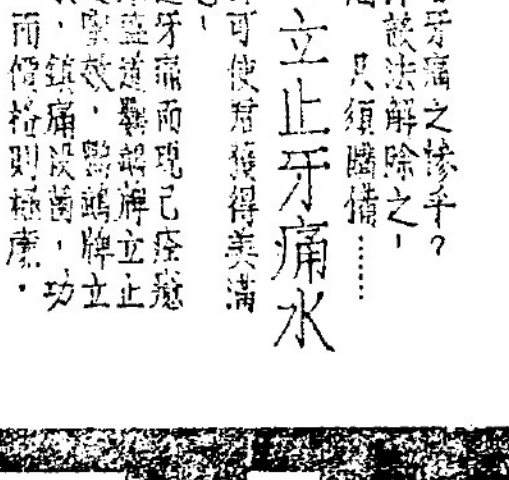 牙痛之慘乎?
設法解除之!
只須購備……
立止牙痛水
可使君獲得美滿
牙痛而現已痊愈
道鸚鵡牌立止
聖效,鸚鵡牌立
,鎮痛殺菌,功
而價格則極廉。